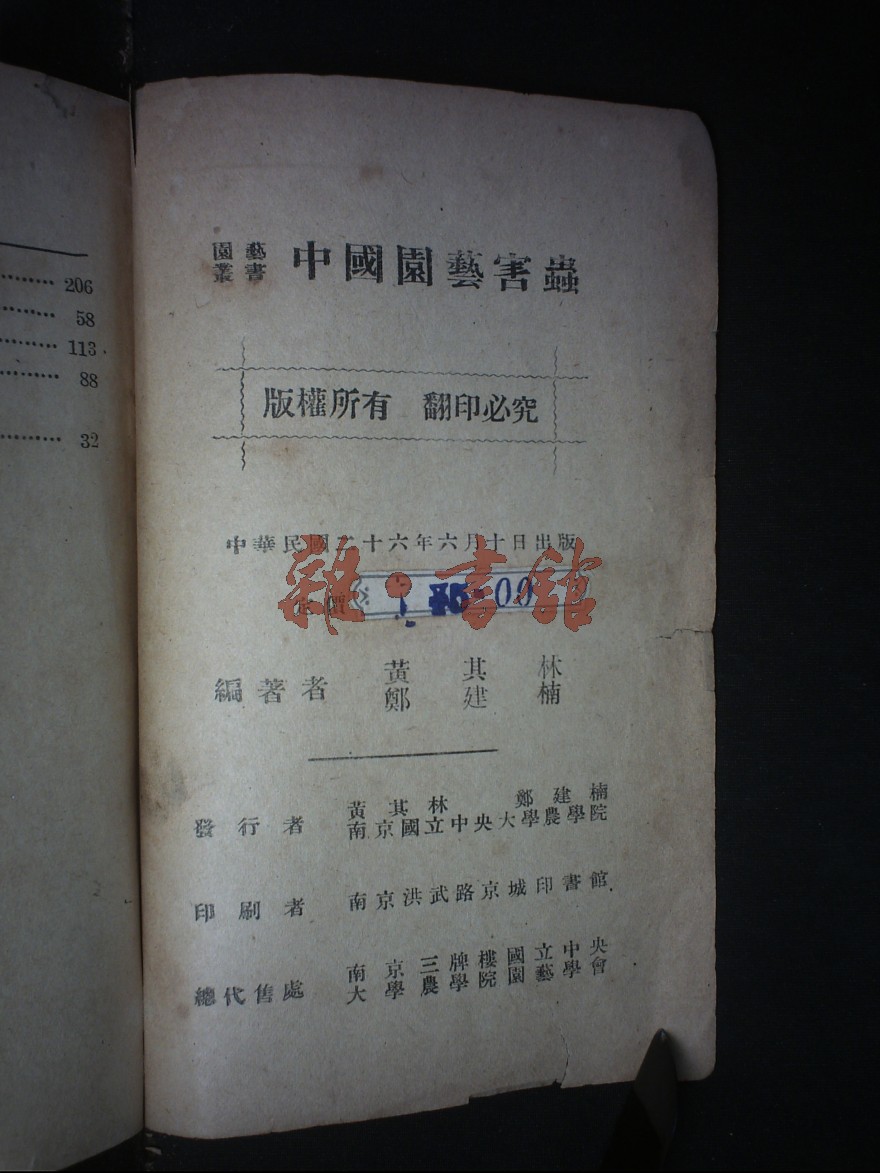 206
58
113
88
32
園藝叢書 中國園藝害蟲
版權所有 翻印必究
中華民國二十六年六月十日出版
定價
雜·書館
編著者 黃其林
鄭建楠
發行者 黃其林 鄭建楠
南京國立中央大學農學院
印刷者 南京洪武路京城印書館
總代售處 南京三牌樓國立中央
大學農學院園藝學會